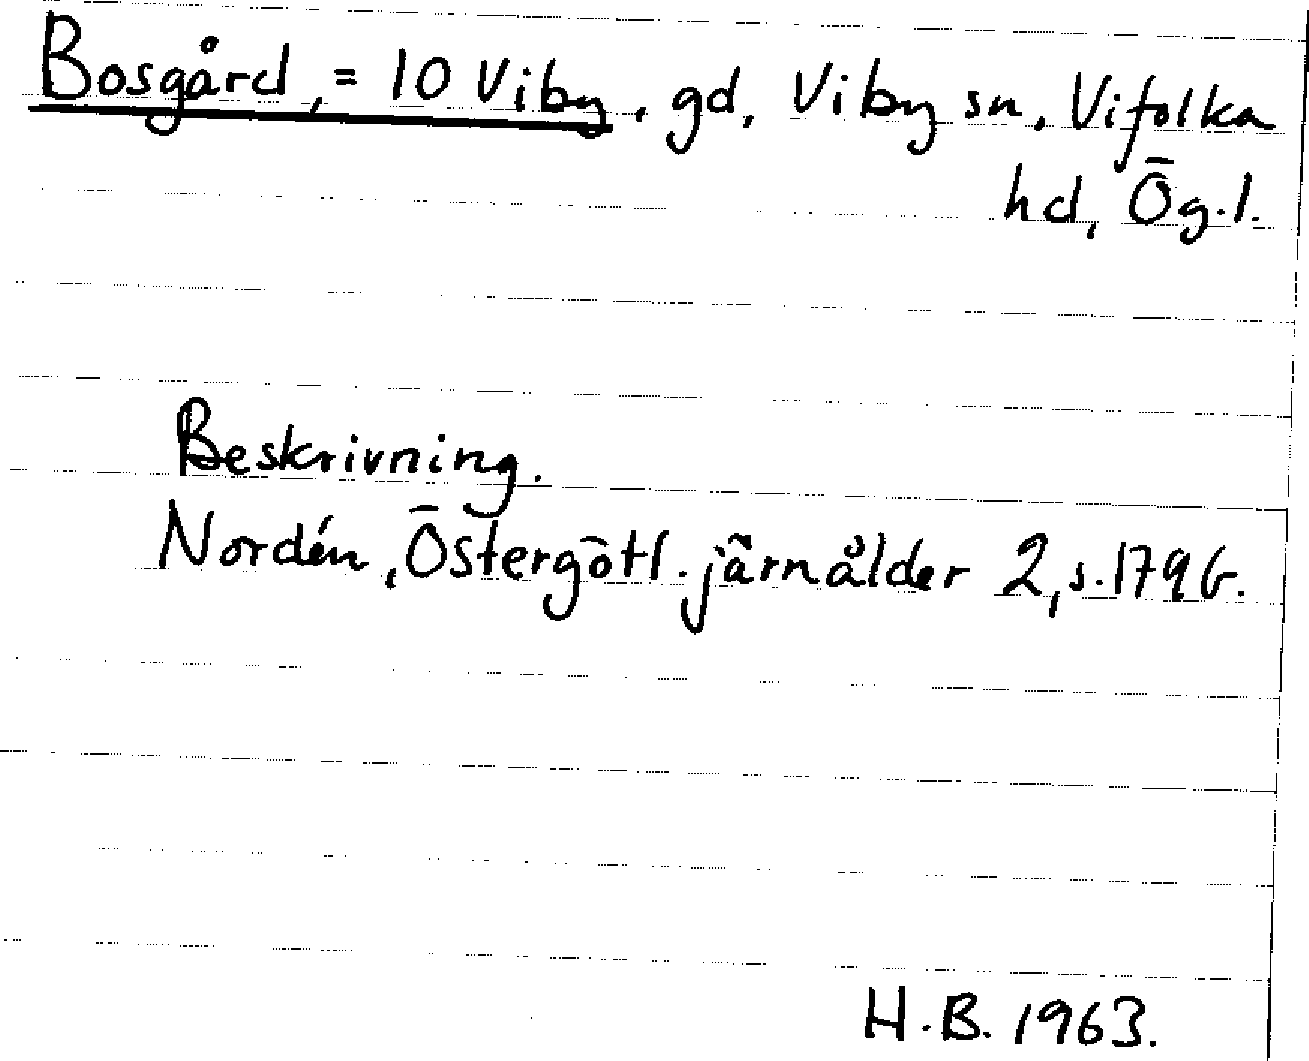 Bosgård, = 10 Viby, gd, Viby sn, Vifolka
hd, Ög.l.
Beskrivning.
Nordén, Östergötl. järnålder 2, s. 179 f.
H.B. 1963.